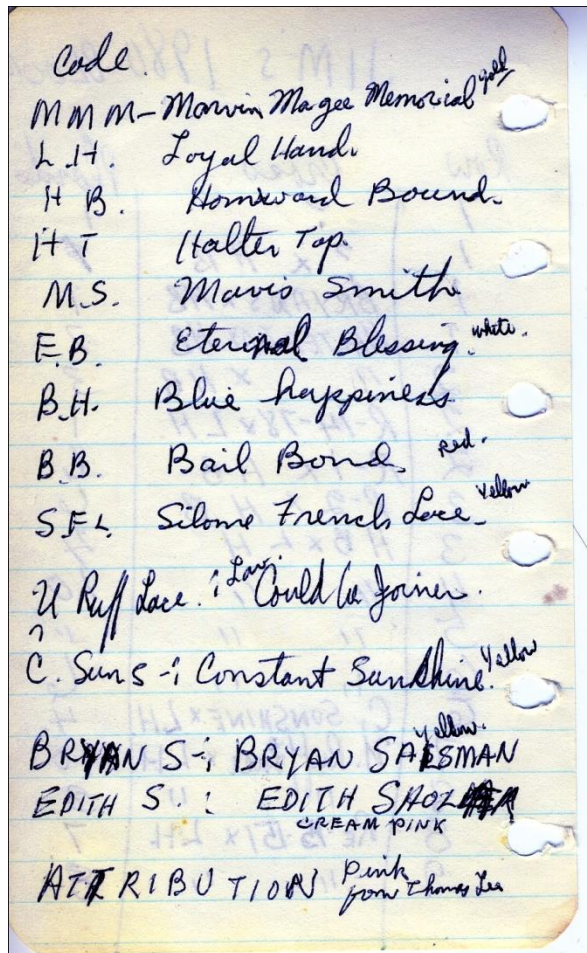 Code.
MMM - Marvin Magee Memorial gold
L.H. Loyal Hand.
H B. Homeward Bound.
H T Halter Top.
M.S. Mavis Smith
E.B. Eternal Blessing. white.
B.H. Blue happiness
B.B. Bail Bond. Red.
S.F.L. Silome French Lace. Yellow
U Ruff Lace. : Lav. Could be Joiner.
?
C. Suns -: Constant Sunshine. Yellow
BRYAN S-: BRYAN SALSMAN yellow.
EDITH S. : EDITH
CREAM PINK
ATTRIBUTION Pink
from Thomas Lea